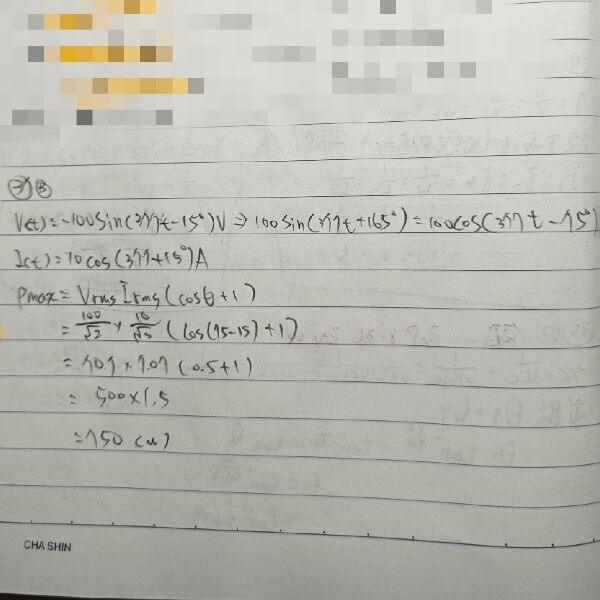 37 B
V(t)=-100sin(377t-15°)V ⇒ 100sin(377t+165°)=100cos(377t-75°)
I(t)=10cos(377+15°)A
Pmax=Vrms Irms(cosθ+1)
=100/√2 × 10/√2 (cos(75-15)+1)
=70.7×7.07(0.5+1)
=500×1.5
=750(W)
CHA SHIN